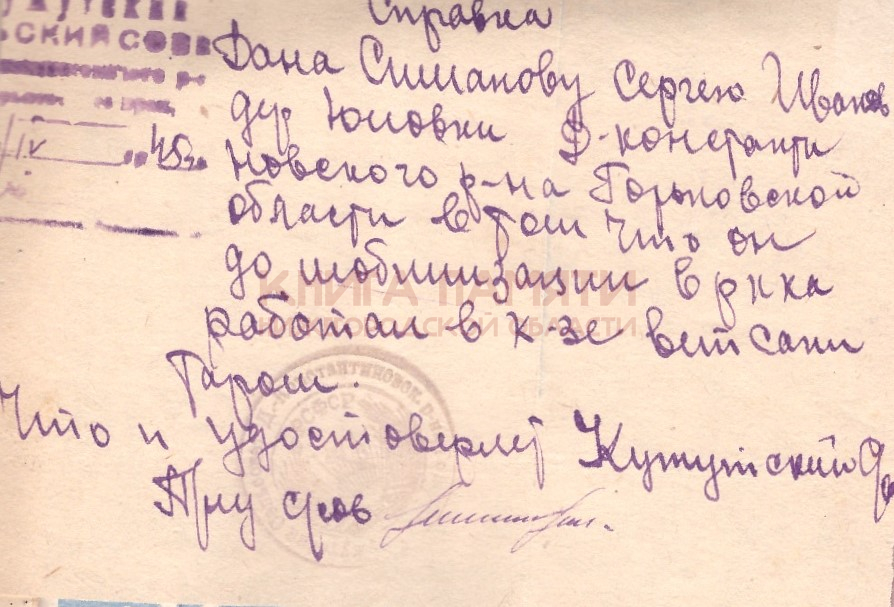 СКИЙ СОВЕ
IV 45 г.
Справка
Дана Симанову Сергею Иванов
дер Юловки Д-константи
новского р-на Горьковской
области в том что он
до мобилизации в ркка
работал в к-зе ветсани
таром.
Что и удостоверяет Кужутский
КНИГА ПАМЯТИ
НИЖЕГОРОДСКОЙ ОБЛАСТИ
Д-КОНСТАНТИНОВСК.
РСФСР